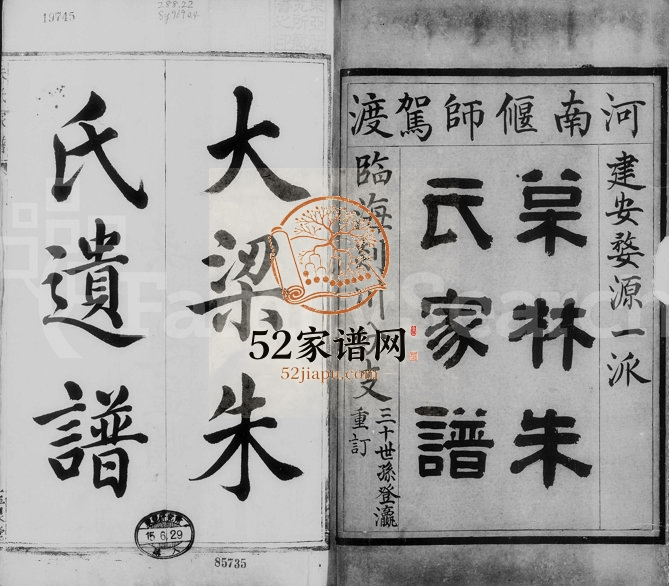 河南偃師駕渡
建安婺源一派
林朱
氏家譜
臨海 川 支
三十世孫登瀛
重訂
大梁朱
氏遺譜
19745
288.22
15.6.29
85735
52家谱网
52jiapu.com